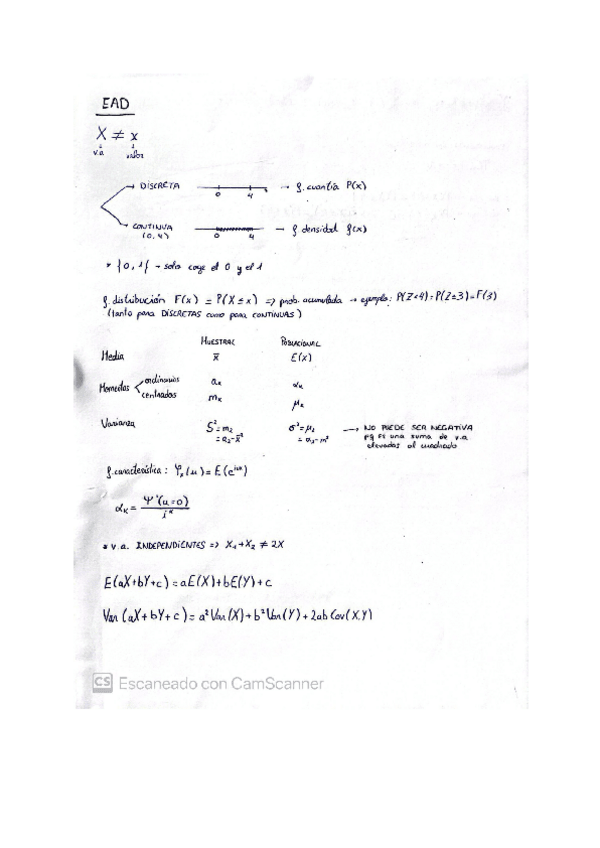 EAD
X ≠ x
v.a valor
→ DISCRETA 0 4 → f. cuantía P(x)
→ CONTINUA 0 4 → f densidad f(x)
(0,4)
* {0,1} → solo coge el 0 y el 1
f. distribución F(x) = P(X ≤ x) => prob. acumulada → ejemplo: P(Z<4) = P(Z≤3) = F(3)
(tanto para DISCRETAS como para CONTINUAS)
MUESTRAL POBLACIONAL
Media x̄ E(x)
Momentos ordinarios aₖ αₖ
centrados mₖ μₖ
Varianza S² = m₂ σ² = μ₂ → NO PUEDE SER NEGATIVA
= a₂ - x̄² = α₂ - m² pq es una suma de v.a
elevadas al cuadrado
f. característica: φₓ(u) = E(e^iux)
αₖ = Ψᵏ(u=0) / iᵏ
* v.a. INDEPENDIENTES => X₁ + X₂ ≠ 2X
E(aX+bY+c) = aE(X)+bE(Y)+c
Var(aX+bY+c) = a² Var(X) + b² Var(Y) + 2ab Cov(X,Y)
CS Escaneado con CamScanner